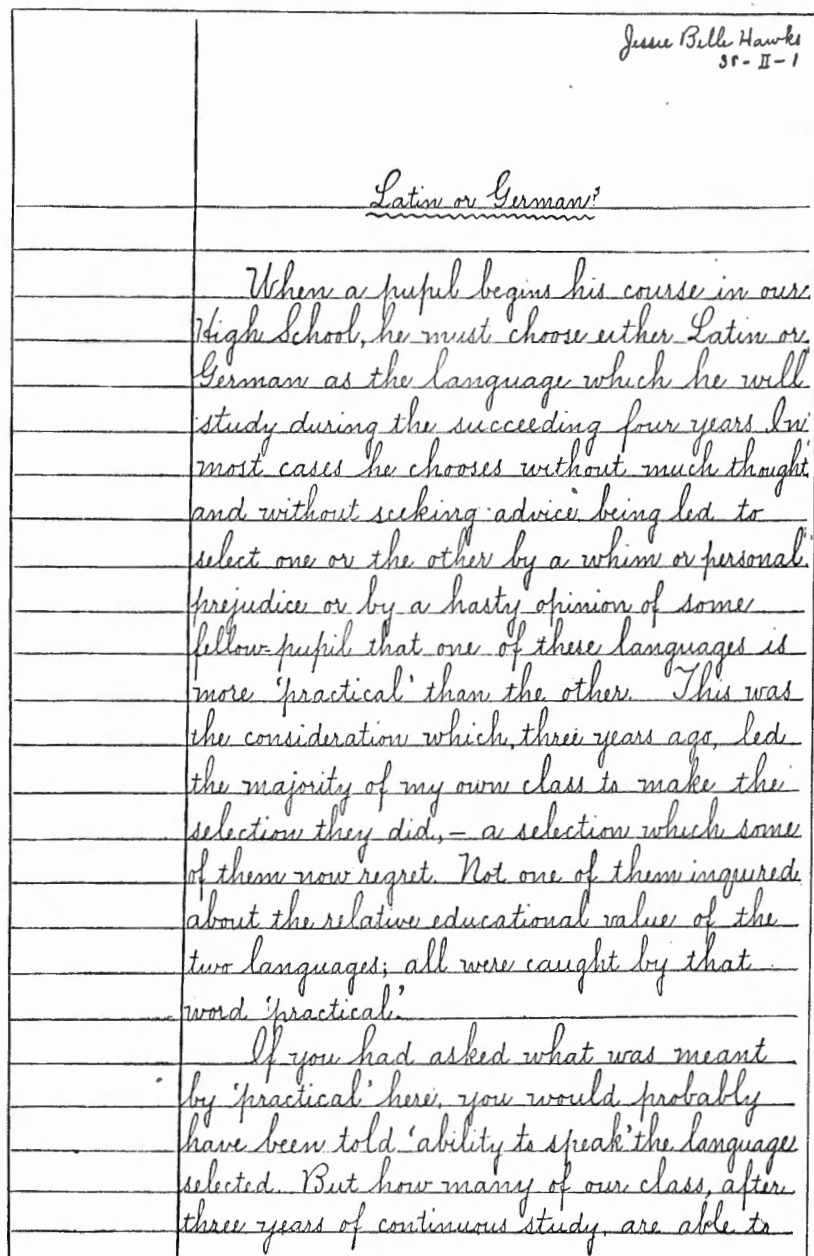 Jessie Belle Hawks
II-1
Latin or German?
When a pupil begins his course in our
High School, he must choose either Latin or
German as the language which he will
study during the succeeding four years In
most cases he chooses without much thought
and without seeking advice being led to
select one or the other by a whim or personal
prejudice or by a hasty opinion of some
fellow-pupil that one of these languages is
more 'practical' than the other. This was
the consideration which, three years ago, led
the majority of my own class to make the
selection they did, — a selection which some
of them now regret. Not one of them inquired
about the relative educational value of the
two languages; all were caught by that
word 'practical.'
If you had asked what was meant
by 'practical' here, you would probably
have been told 'ability to speak' the language
selected. But how many of our class, after
three years of continuous study, are able to